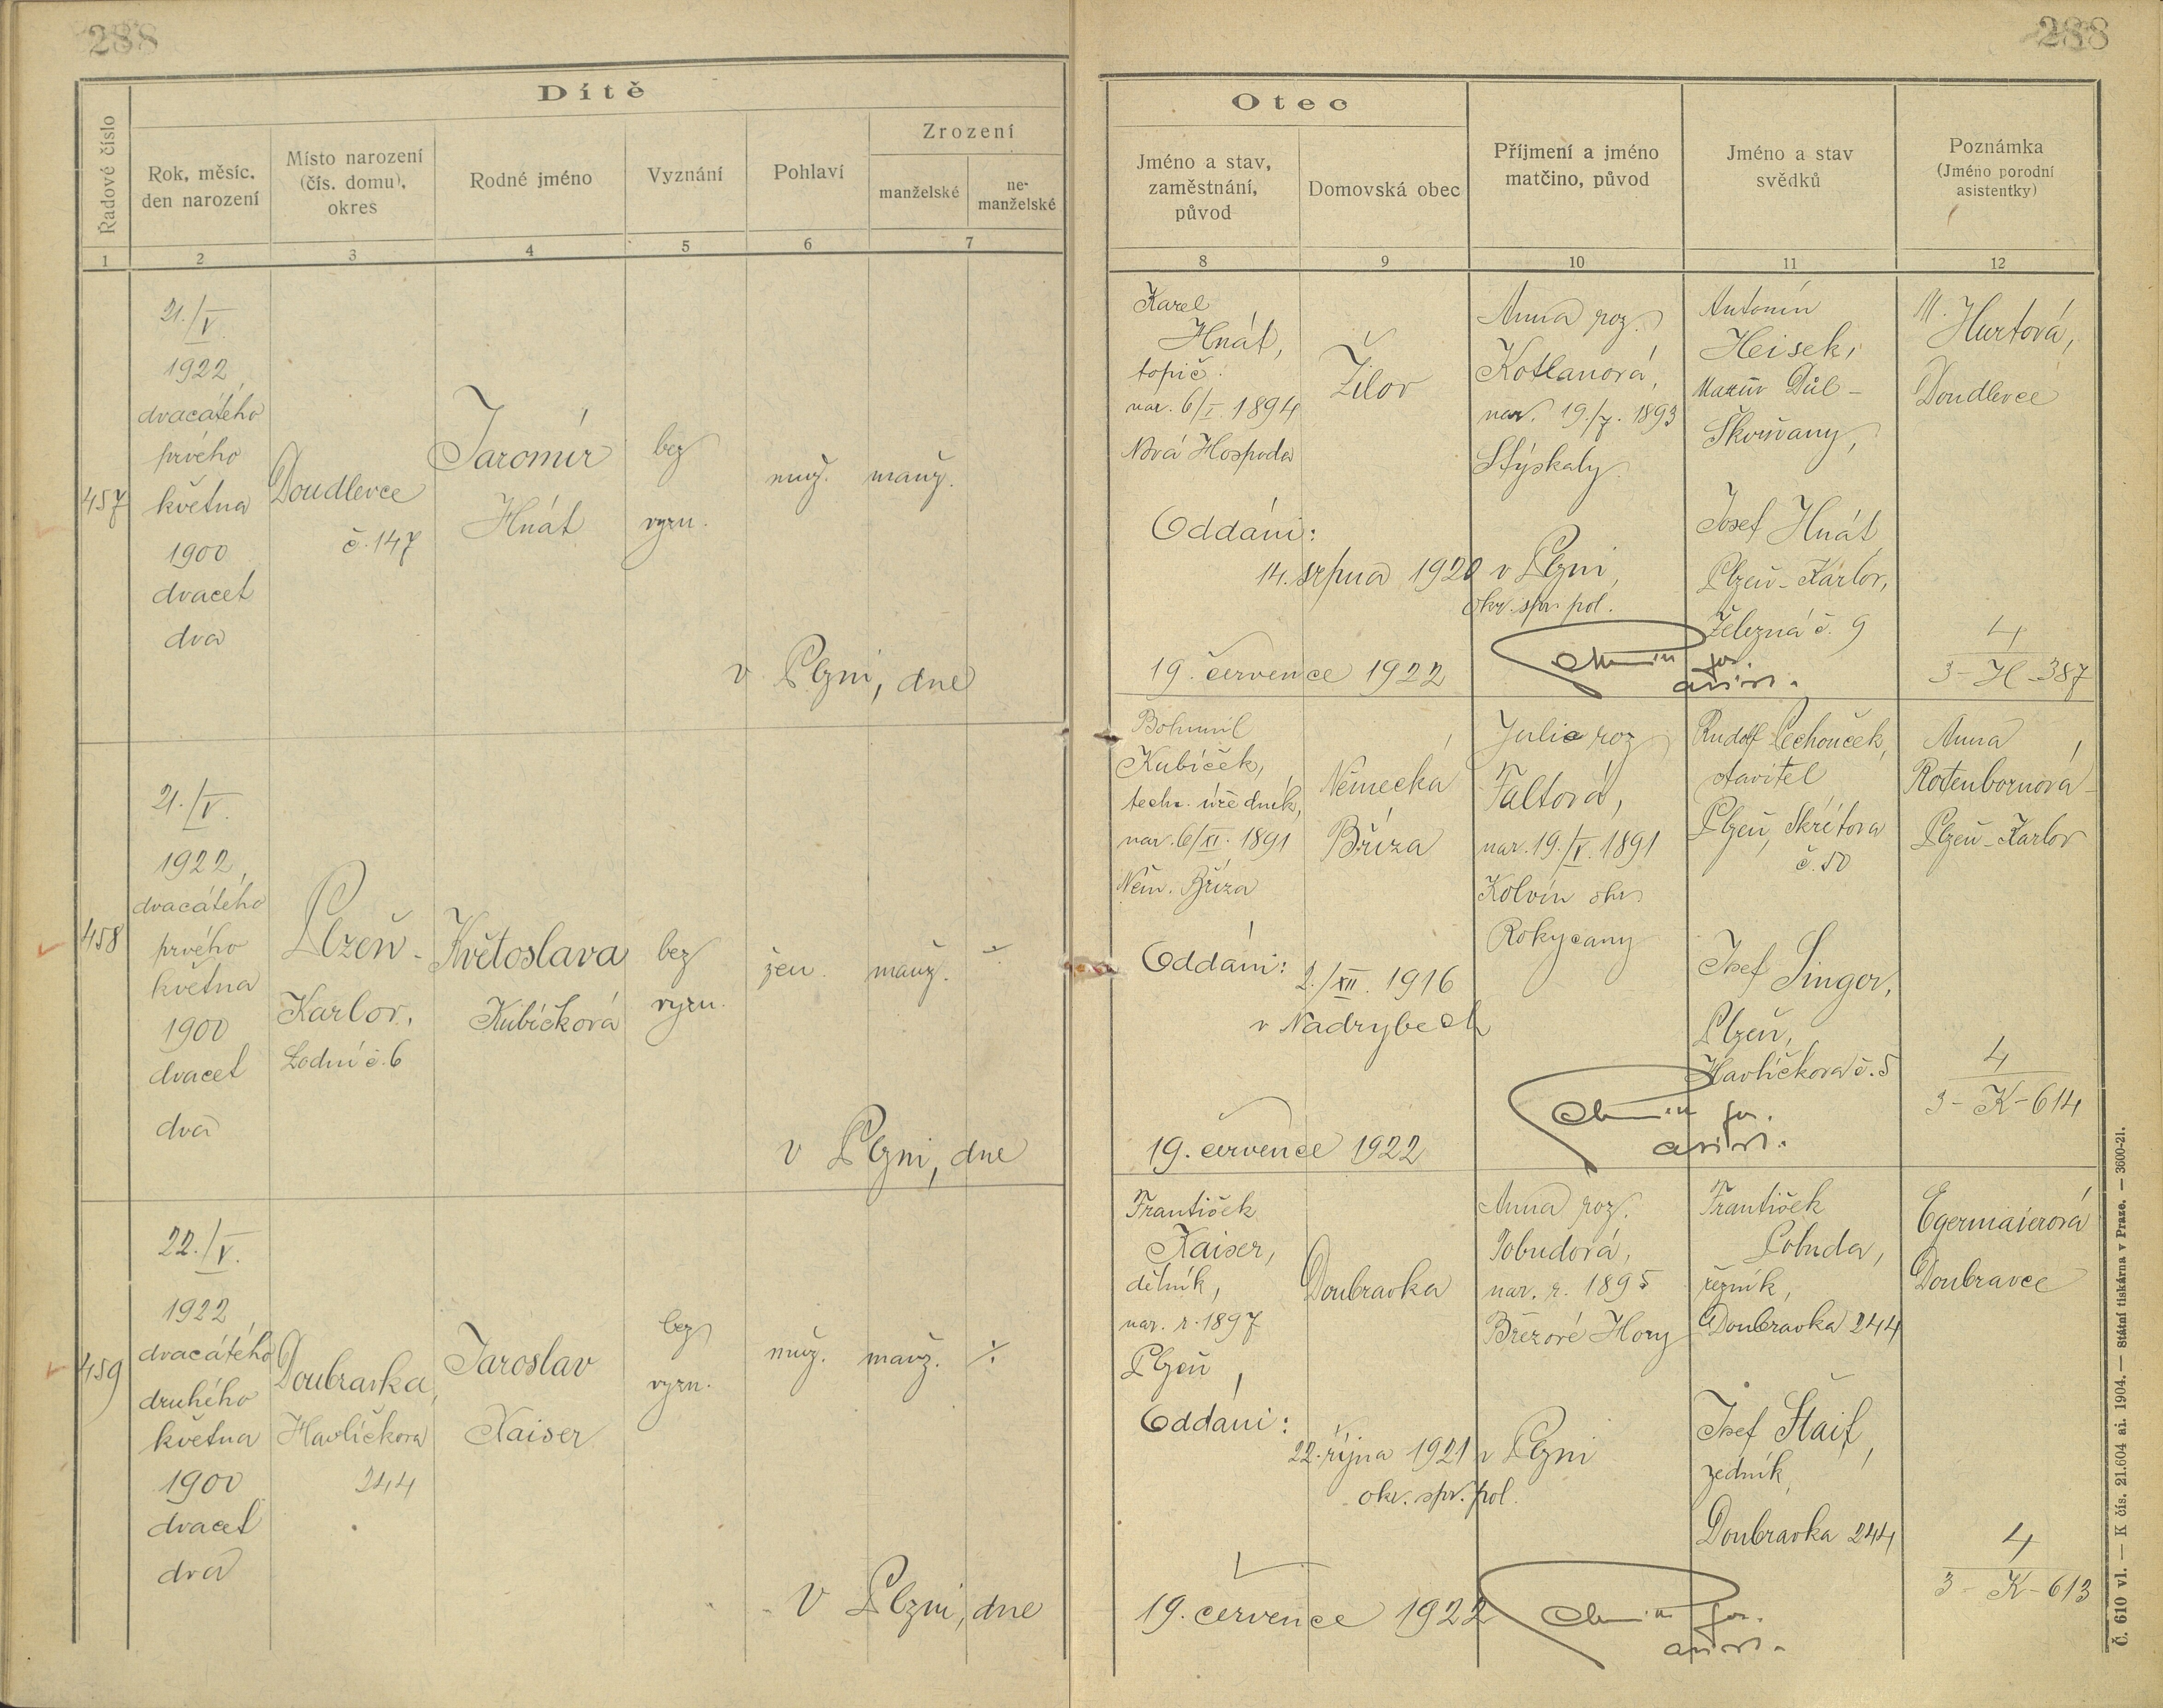 288
288
Dítě
Řadové číslo
Rok, měsíc,
den narození
Místo narození
(čís. domu),
okres
Rodné jméno
Vyznání
Pohlaví
Zrození
manželské
ne-
manželské
1
2
3
4
5
6
7
Otec
Jméno a stav,
zaměstnání,
původ
Domovská obec
Příjmení a jméno
matčino, původ
Jméno a stav
svědků
Poznámka
(Jméno porodní
asistentky)
8
9
10
11
12
457
21./V.
1922
dvacátého
prvého
května
1900
dvacet
dva
Doudlevce
č. 147
Jaromír
Hnát
bez
vyzn.
muž.
manž.
v Plzni, dne
Karel
Hnát,
topič.
nar. 6/I. 1894
Nová Hospoda
Žilov
Anna roz.
Kotlanová,
nar. 19./7. 1893
Stýskaly
Antonín
Heisek,
Důl -
Škvrňany,
Josef Hnát
Plzeň - Karlov,
Železná č. 9
M. Hurtová,
Doudlevce
Oddáni:
14. srpna 1920 v Plzni,
okr. spr. pol.
19. července 1922
asist.
4
3 - H - 387
458
21./V.
1922
dvacátého
prvého
května
1900
dvacet
dva
Plzeň -
Karlov,
Lodní č. 6
Květoslava
Kubíčková
bez
vyzn.
žen.
manž.
v Plzni, dne
Bohumil
Kubíček,
techn. úředník,
nar. 6/XI. 1891
Něm. Bříza
Německá
Bříza
Julie roz
Faltová,
nar. 19./V. 1891
Kolvín okr.
Rokycany
Rudolf Pechouček,
stavitel
Plzeň, Skrétova
č. 50
Josef Singer,
Plzeň,
Havlíčkova č. 5
Anna
Rotenbornová -
Plzeň - Karlov
Oddáni:
2./XII. 1916
v Nadrybech
19. července 1922
asist.
4
3 - K - 614
459
22./V.
1922
dvacátého
druhého
května
1900
dvacet
dva
Doubravka,
Havlíčkova
244
Jaroslav
Kaiser
bez
vyzn.
muž.
manž.
v Plzni, dne
František
Kaiser,
dělník,
nar. r. 1897
Plzeň
Doubravka
Anna roz.
Pobudová,
nar. r. 1895
Březové Hory
František
Pobuda,
řezník,
Doubravka 244
Josef Štaif,
zedník,
Doubravka 244
Egermaierová
Doubravce
Oddáni:
22. října 1921 v Plzni
okr. spr. pol.
19. července 1922
asist.
4
3 - K - 613
Č. 610 vl. — K čís. 21.604 ai. 1904. — Státní tiskárna v Praze. — 3600-21.